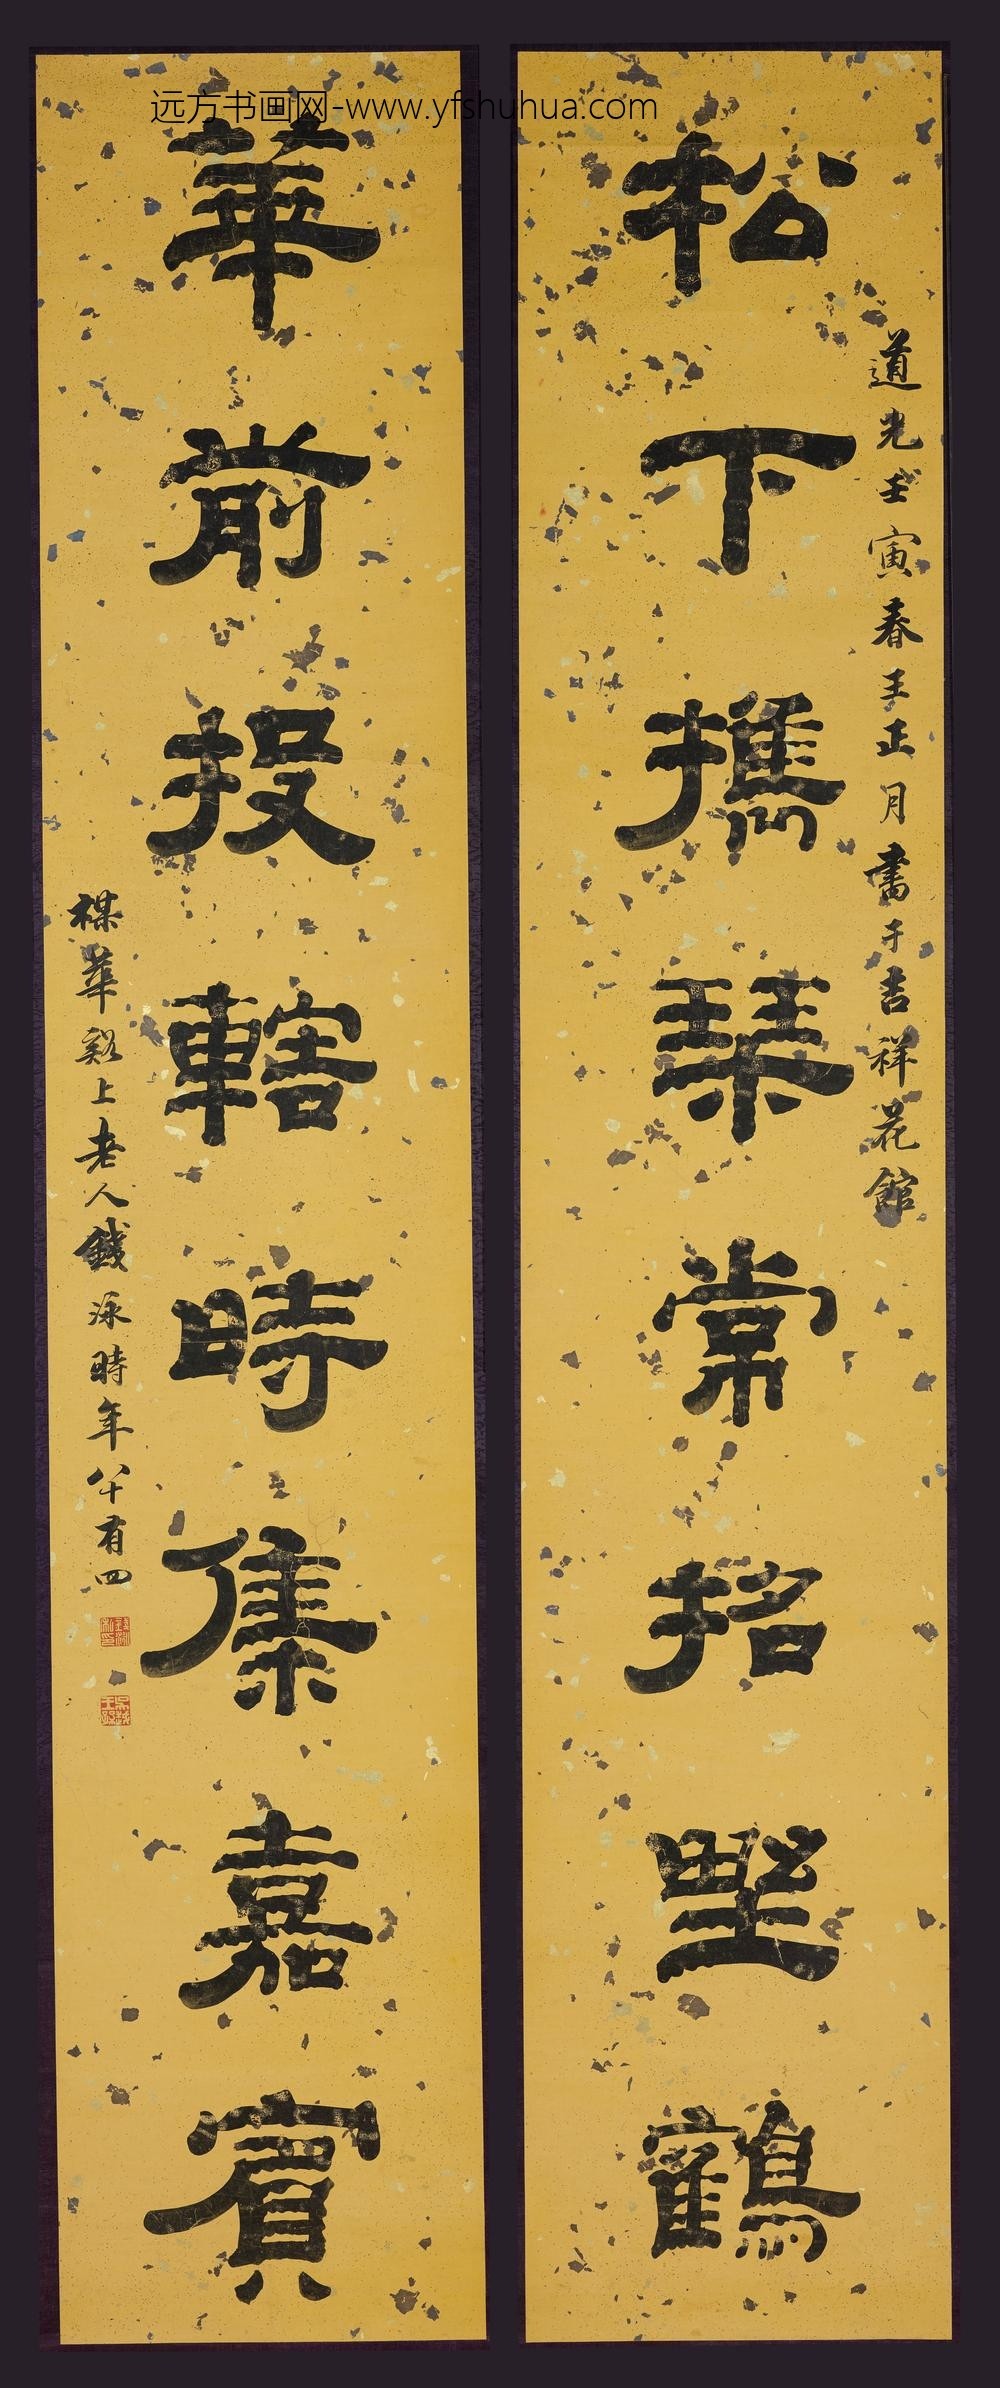 远方书画网-www.yfshuhua.com
松下攜琴常招野鶴
道光壬寅春王正月書于吉祥花館
華前投轄時集嘉賓
楳華谿上老人錢泳時年八十有四